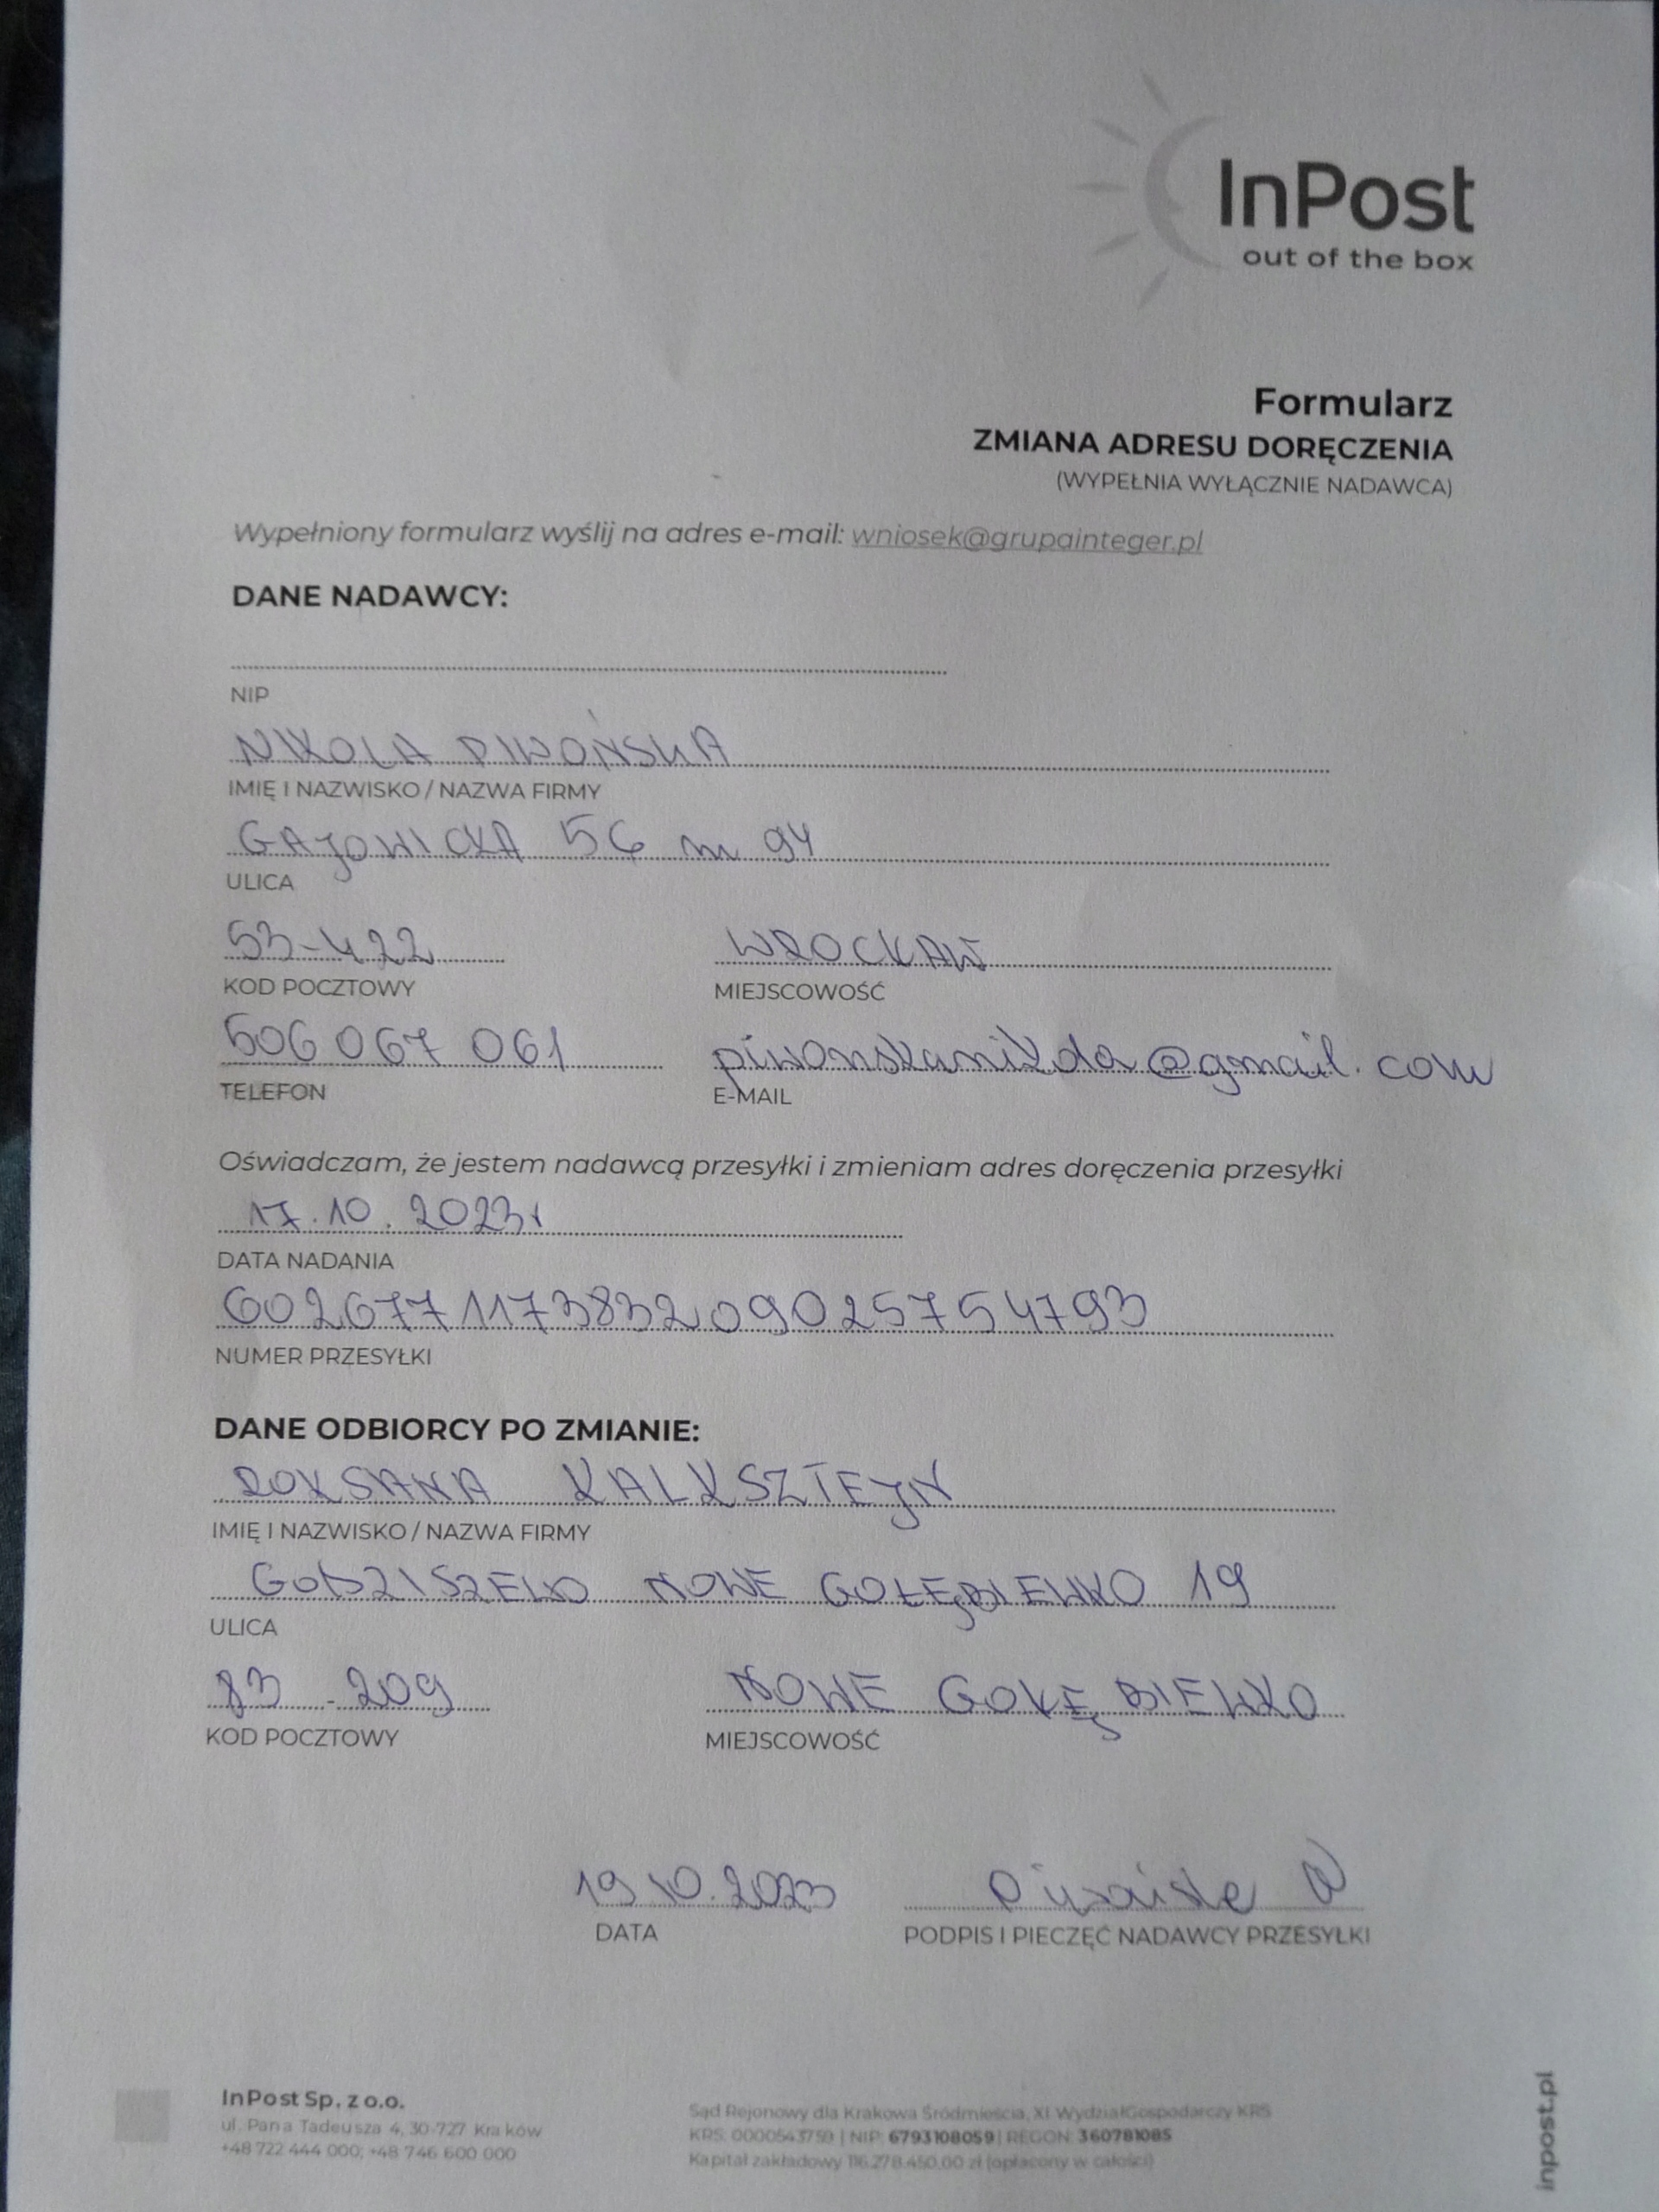 InPost
out of the box
Formularz
ZMIANA ADRESU DORĘCZENIA
(WYPEŁNIA WYŁĄCZNIE NADAWCA)
Wypełniony formularz wyślij na adres e-mail: wniosek@grupainteger.pl
DANE NADAWCY:
NIP
NIKOLA PIWOŃSKA
IMIĘ I NAZWISKO / NAZWA FIRMY
GAJOWICKA 56 m 94
ULICA
53-422 WROCŁAW
KOD POCZTOWY MIEJSCOWOŚĆ
506 067 061
TELEFON E-MAIL
Oświadczam, że jestem nadawcą przesyłki i zmieniam adres doręczenia przesyłki
17.10.2023r
DATA NADANIA
602677117383209025754793
NUMER PRZESYŁKI
DANE ODBIORCY PO ZMIANIE:
ROKSANA KALKSZTEJN
IMIĘ I NAZWISKO / NAZWA FIRMY
GODZISZEWO NOWE GOŁĘBIEWKO 19
ULICA
83-209 NOWE GOŁĘBIEWKO
KOD POCZTOWY MIEJSCOWOŚĆ
19 10.2023
DATA PODPIS I PIECZĘĆ NADAWCY PRZESYŁKI
InPost Sp. z o.o.
ul. Pana Tadeusza 4, 30-727 Kraków
+48 722 444 000; +48 746 600 000
Sąd Rejonowy dla Krakowa Śródmieścia, XI Wydział Gospodarczy KRS
KRS: 0000543759 | NIP: 6793108059 | REGON: 360781085
Kapitał zakładowy 116.278.450,00 zł (opłacony w całości)
inpost.pl